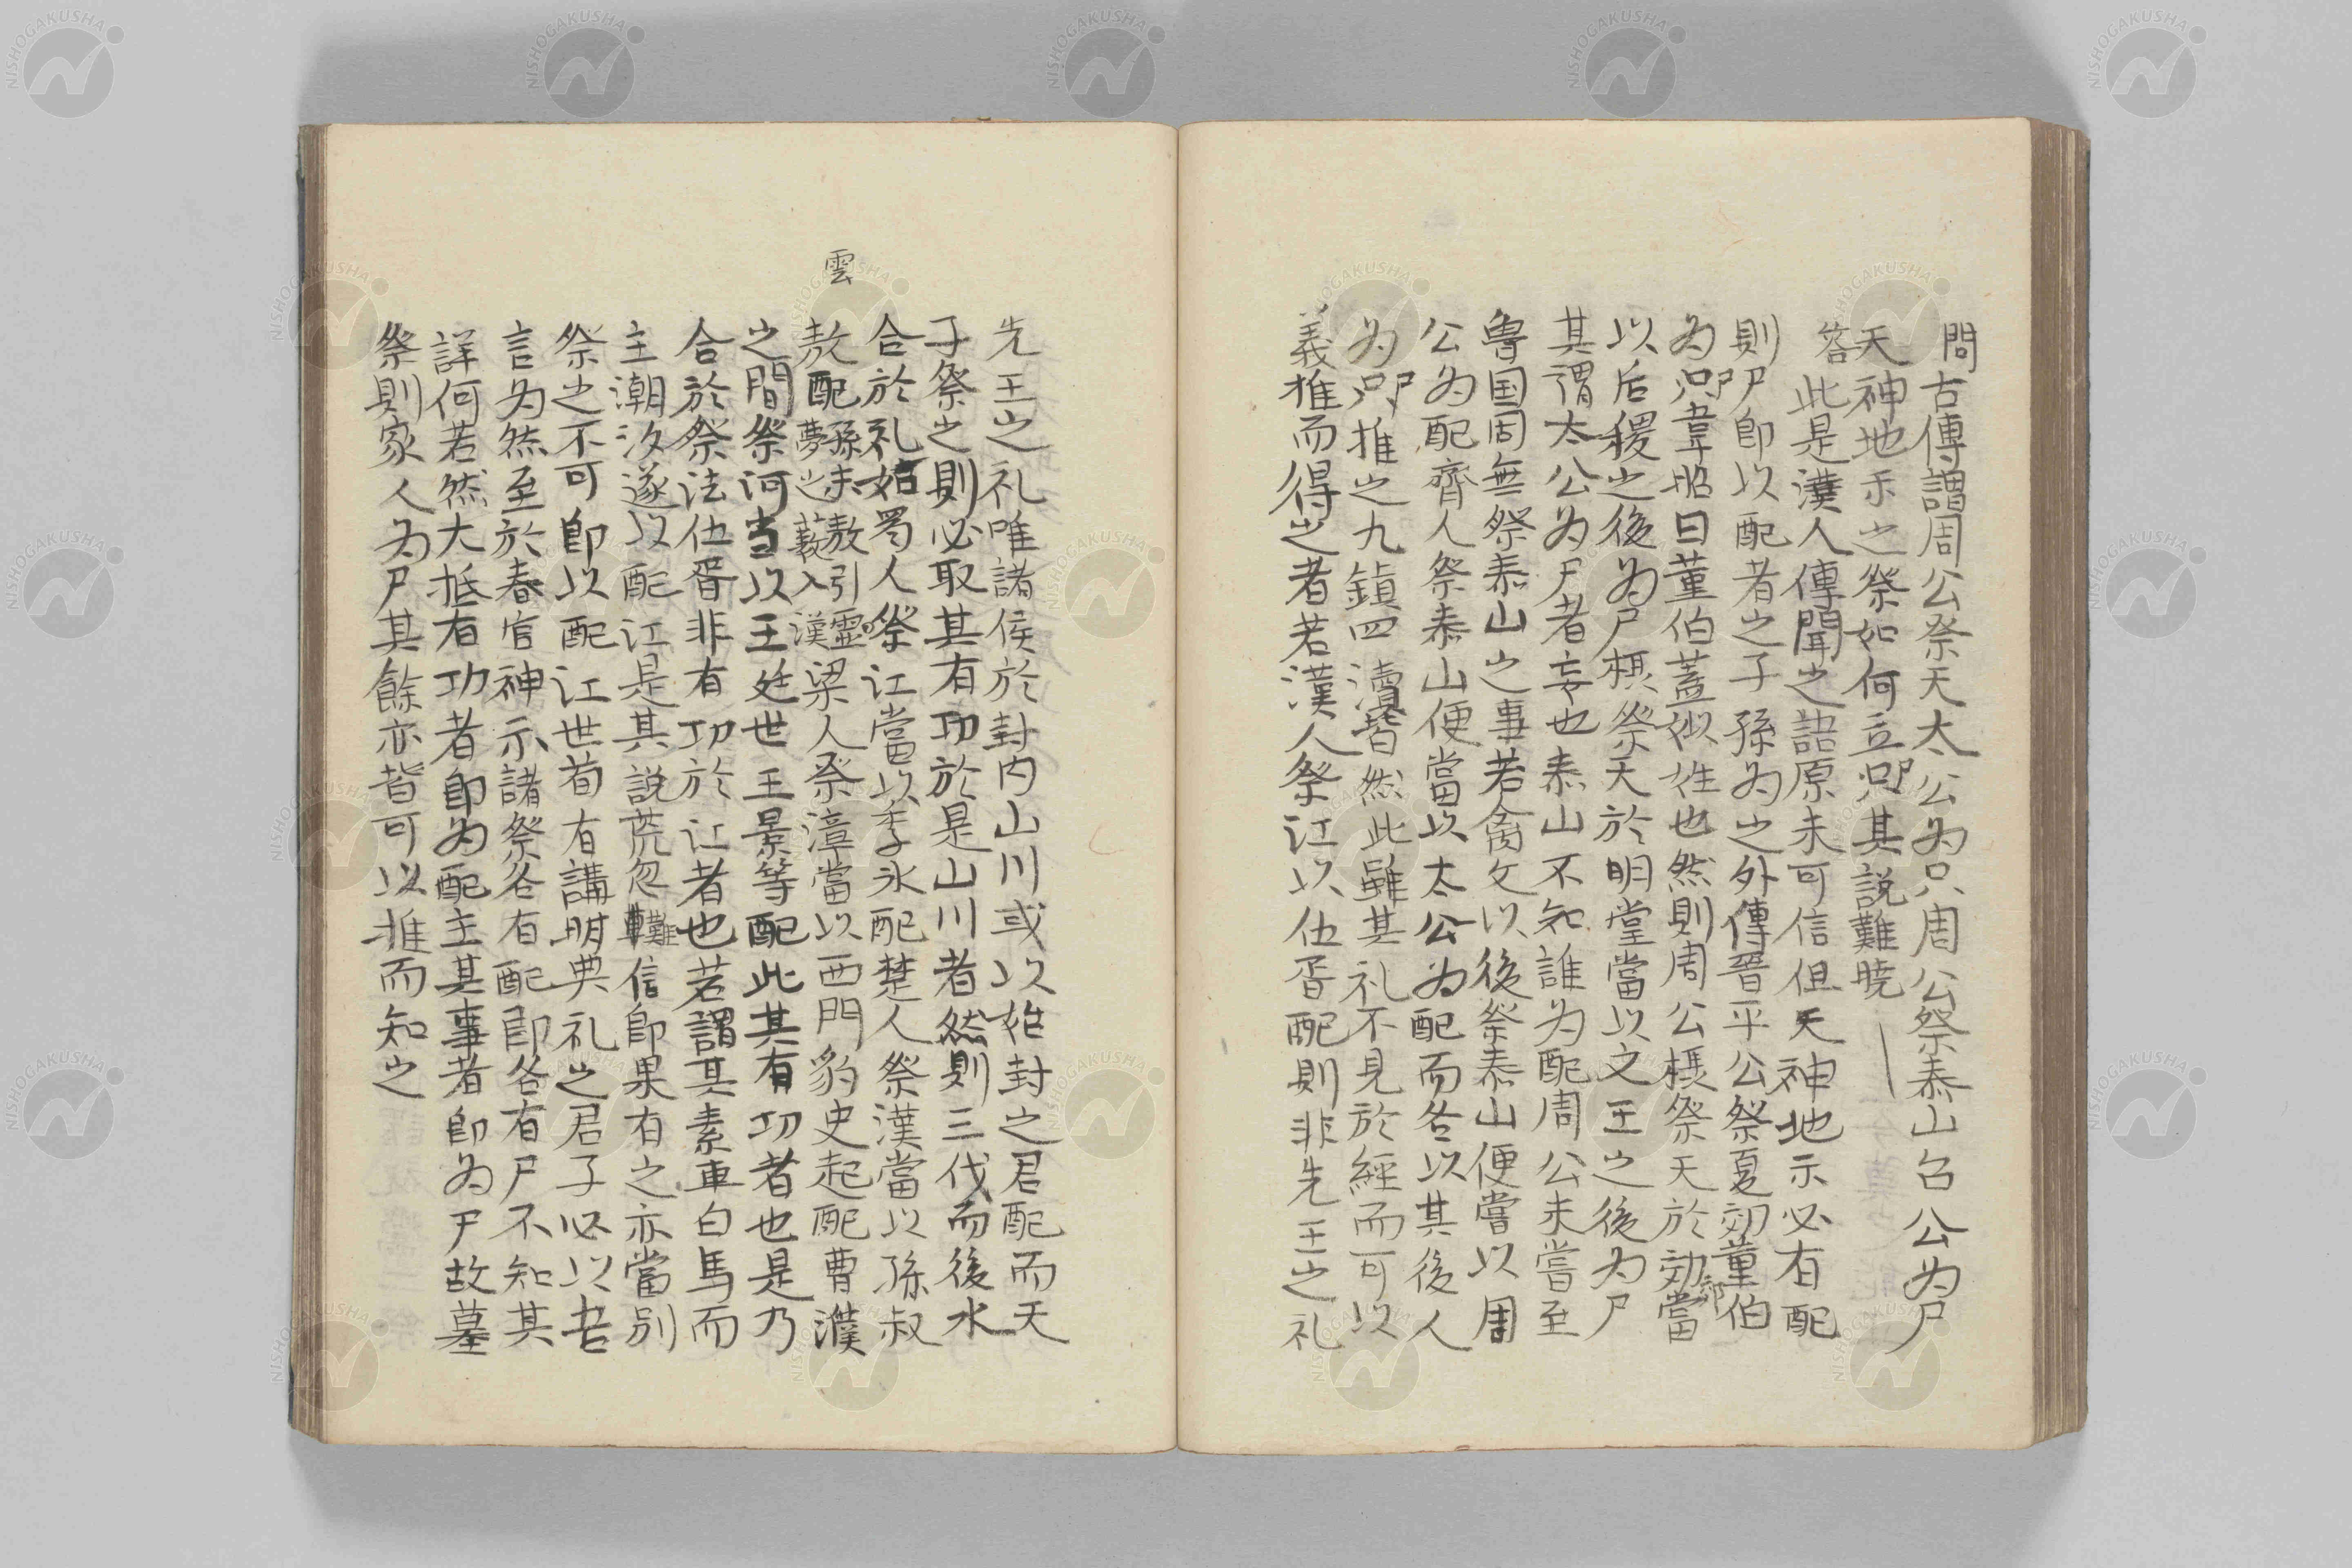 問古傳謂周公祭天太公為尸周公祭泰山召公為尸
天神地示之祭如何立尸其説難曉
答此是漢人傳聞之語原未可信但天神地示必有配
則尸即以配者之子孫為之外傳晉平公祭夏郊董伯
為尸韋昭曰董伯蓋姒姓也然則周公禖祭天於郊當
以后稷之後為尸禖祭天於明堂當以文王之後為尸
其謂太公為尸者妄也泰山不知誰為配周公未嘗至
魯国周無祭泰山之事若禽父以後祭泰山便當以周
公為配齊人祭泰山便當以太公為配而各以其後人
為尸推之九鎮四瀆皆然此雖其礼不見於經而可以
義推而得之者若漢人祭江以伍胥配則非先王之礼
先王之礼唯諸侯於封内山川或以始封之君配而天
子祭之則必取其有功於是山川者然則三代而後水
合於礼始蜀人祭江當以李氷配楚人祭漢當以孫叔
雲
敖配孫未敖引靈夢之藪入漢梁人祭漳當以西門豹史起配曹濮
之間祭河当以王延世王景等配此其有功者也是乃
合於祭法伍胥非有功於江者也若謂其素車白馬而
主潮汐遂以配江是其説荒忽難信即果有之亦當別
祭之不可即以配江世苟有講明典礼之君子必以吾
言為然至於春官神示諸祭各有配即各有尸不知其
詳何若然大抵有功者即為配主其事者即為尸故墓
祭則家人為尸其餘亦皆可以推而知之